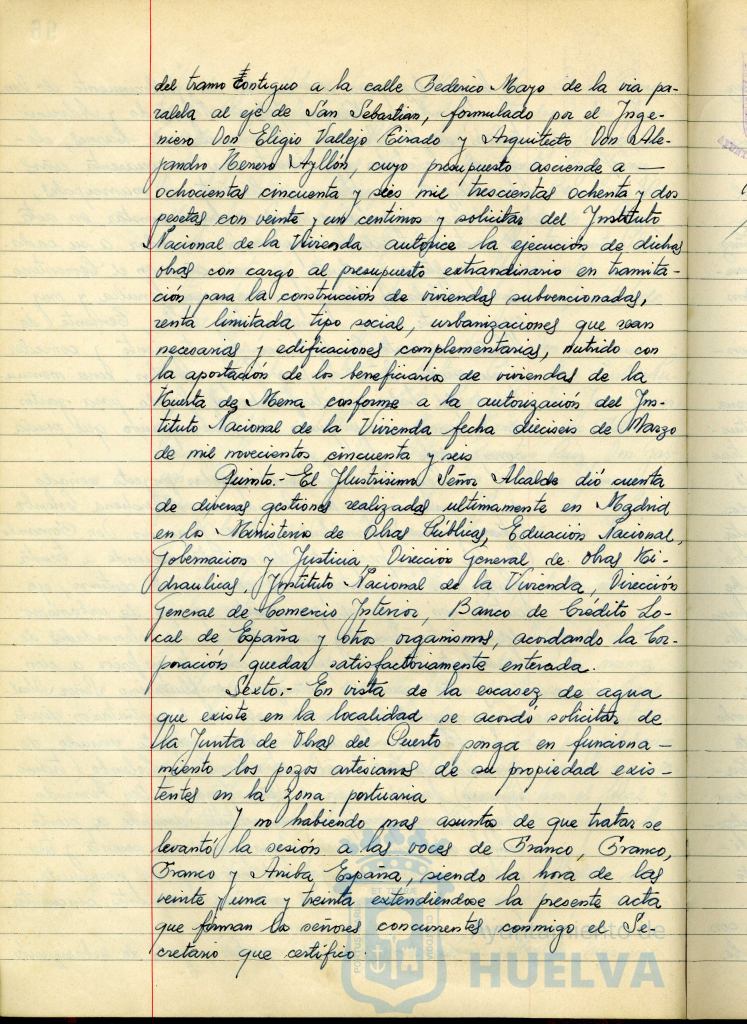 del tramo Contiguo a la calle Bederico Mayo de la via pa-
ralela al eje de San Sebastian, formulado por el Inge-
niero Don Eligio Vallejo Tirado y Arquitecto Don Ale-
jandro Herrero Ayllón, cuyo presupuesto asciende a —
ochocientas cincuenta y seis mil trescientas ochenta y dos
pesetas con veinte y un centimos y solicitar del Instituto
Nacional de la Vivienda autorice la ejecución de dichas
obras con cargo al presupuesto extraordinario en tramita-
ción para la construcción de viviendas subvencionadas,
renta limitada tipo social, urbanizaciones que sean
necesarias y edificaciones complementarias, nutrido con
la aportación de los beneficiarios de viviendas de la
Huerta de Mena conforme a la autorización del Ins-
tituto Nacional de la Vivienda fecha dieciseis de Marzo
de mil novecientos cincuenta y seis
Quinto.- El Ilustrisimo Señor Alcalde dió cuenta
de diversas gestiones realizadas ultimamente en Madrid
en los Ministerios de Obras Públicas, Educación Nacional,
Gobernacion y Justicia, Dirección General de Obras Hi-
draulicas, Instituto Nacional de la Vivienda, Dirección
General de Comercio Interior, Banco de Crédito Lo-
cal de España y otros organismos, acordando la Cor-
poración quedar satisfactoriamente enterada.
Sexto.- En vista de la escasez de agua
que existe en la localidad se acordó solicitar de
la Junta de Obras del Puerto ponga en funciona-
miento los pozos artesianos de su propiedad exis-
tentes en la zona portuaria
Y no habiendo mas asuntos de que tratar se
levantó la sesión a las voces de Franco, Franco,
Franco y Arriba España, siendo la hora de las
veinte y una y treinta extendiendose la presente acta
que firman los señores concurrentes conmigo el Se-
cretario que certifico.
Ayuntamiento de
HUELVA